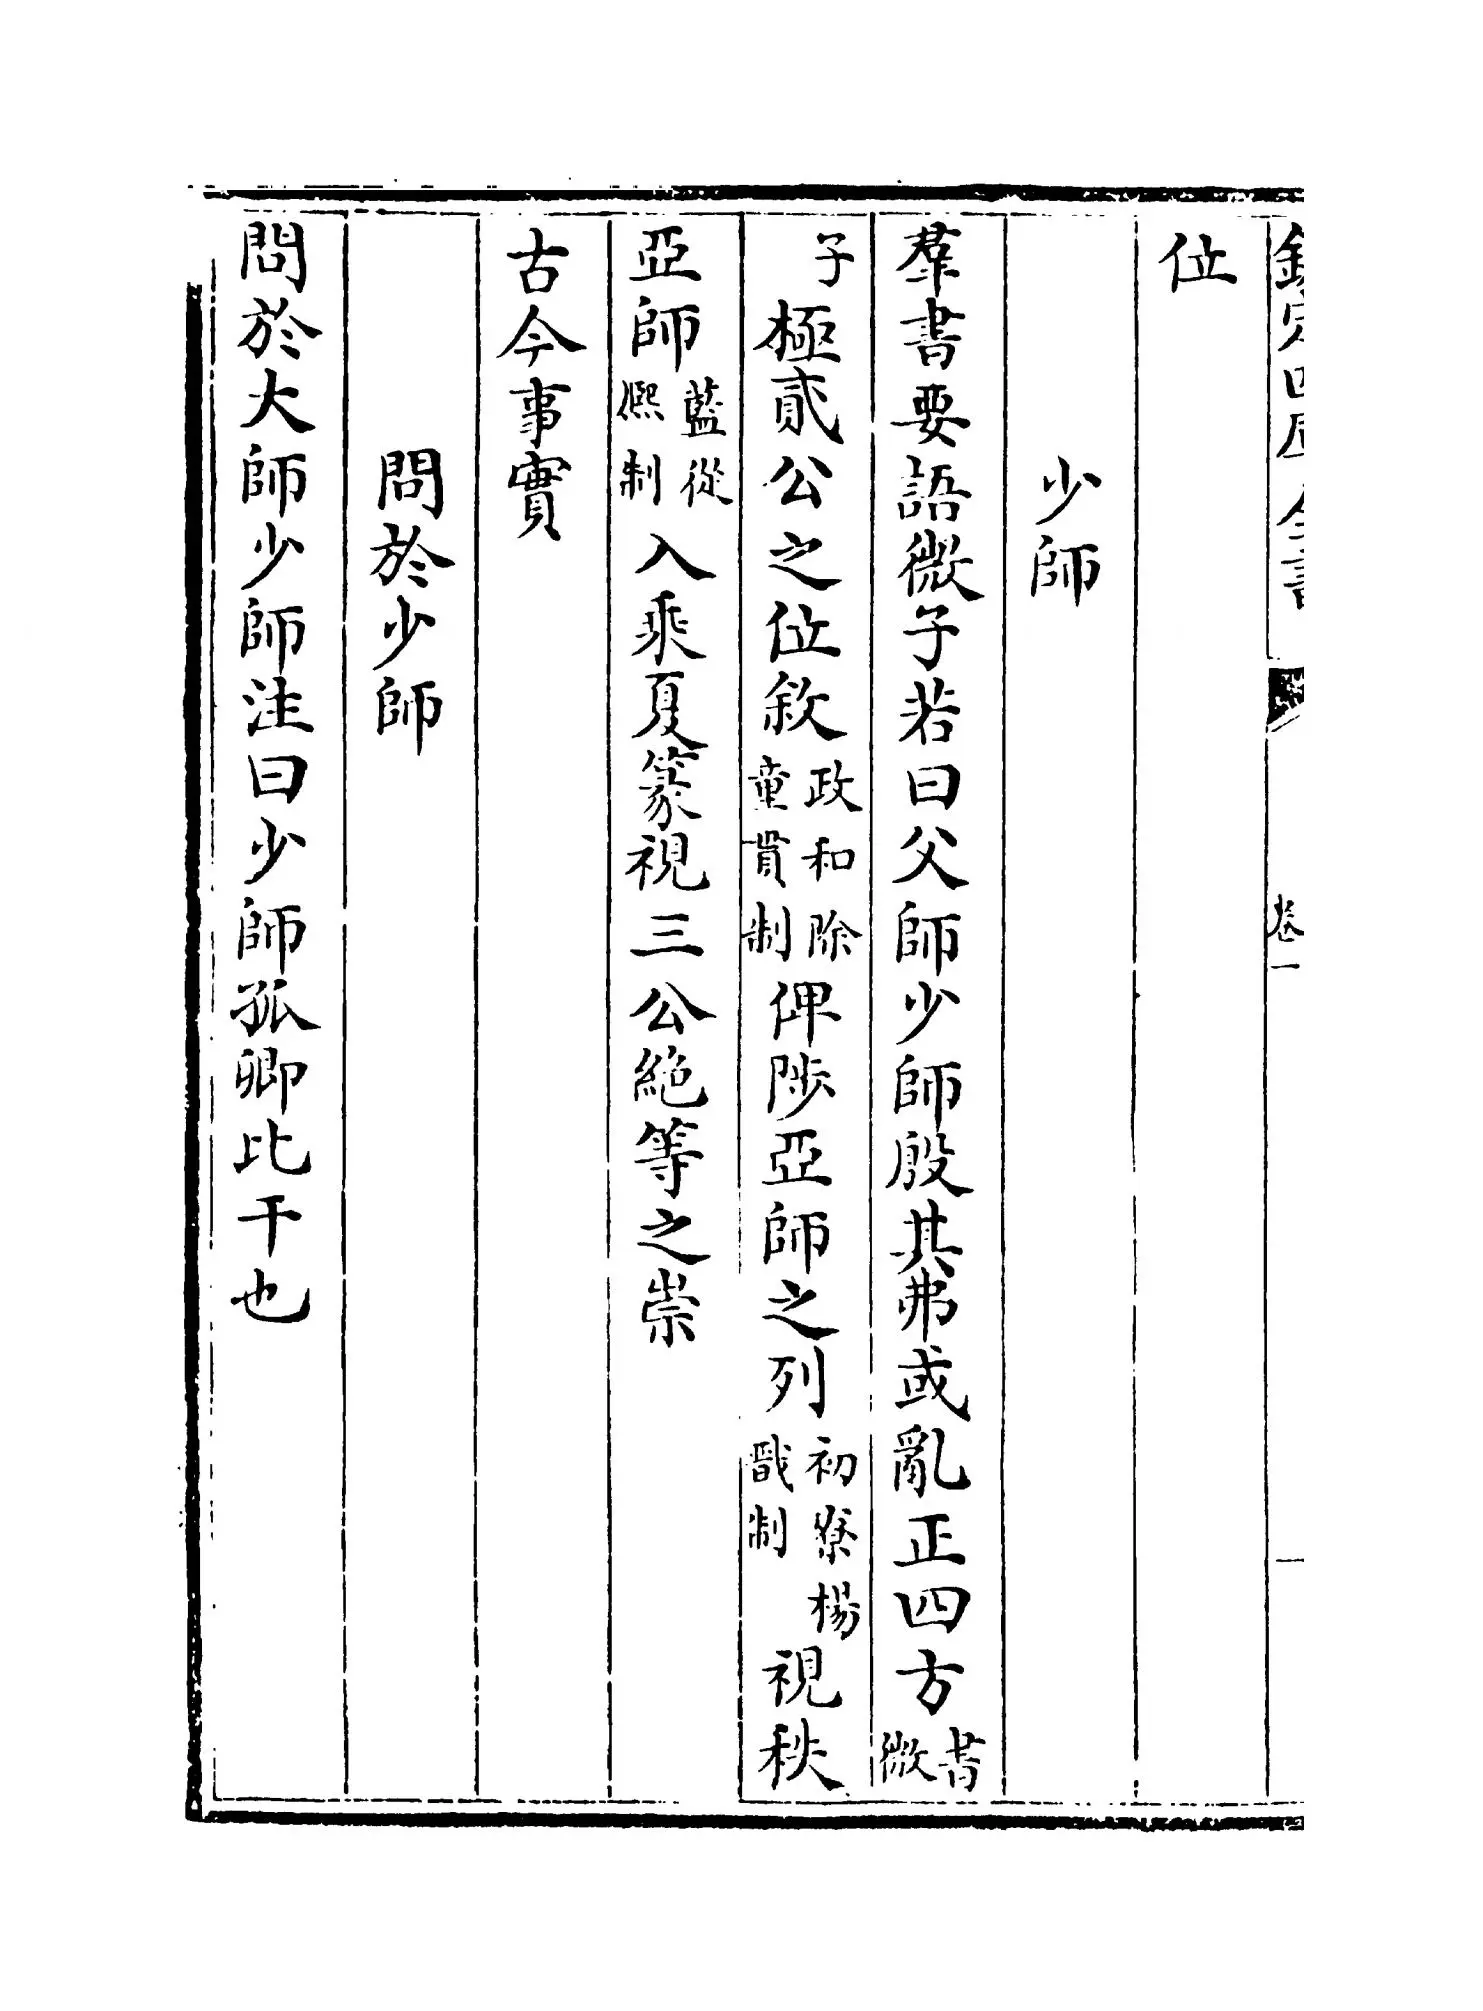 欽定四庫全書
卷一
位
少師
羣書要語微子若曰父師少師殷其弗或亂正四方書微
子極貳公之位敘政和除童貫制俾陟亞師之列初寮楊戩制視秩
亞師藍從熈制入乘夏篆視三公絶等之崇
古今事實
問於少師
問於大師少師注曰少師孤卿比干也